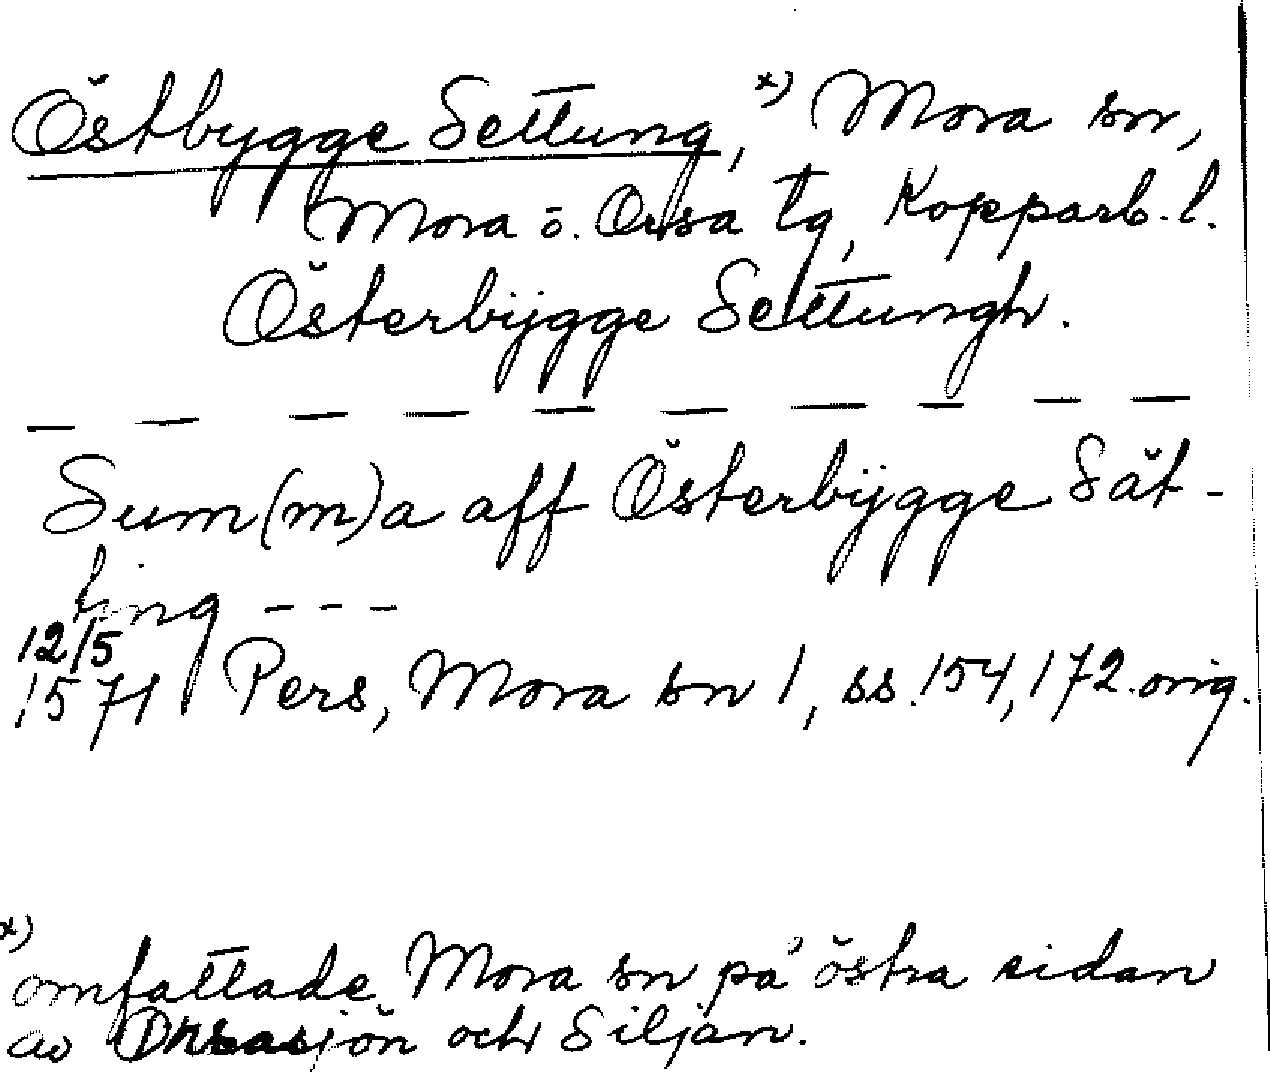 Östbygge Settung, x) Mora sn,
Mora o. Orsa tg, Kopparb. l.
Österbygge Settungh.
— — — — — — — — — —
Sum(m)a aff Österbygge Sät-
ting ---
12/5
1571 Pers, Mora sn 1, ss. 154, 172. orig.
x)
omfattade Mora sn på östra sidan
av Orsasjön och Siljan.